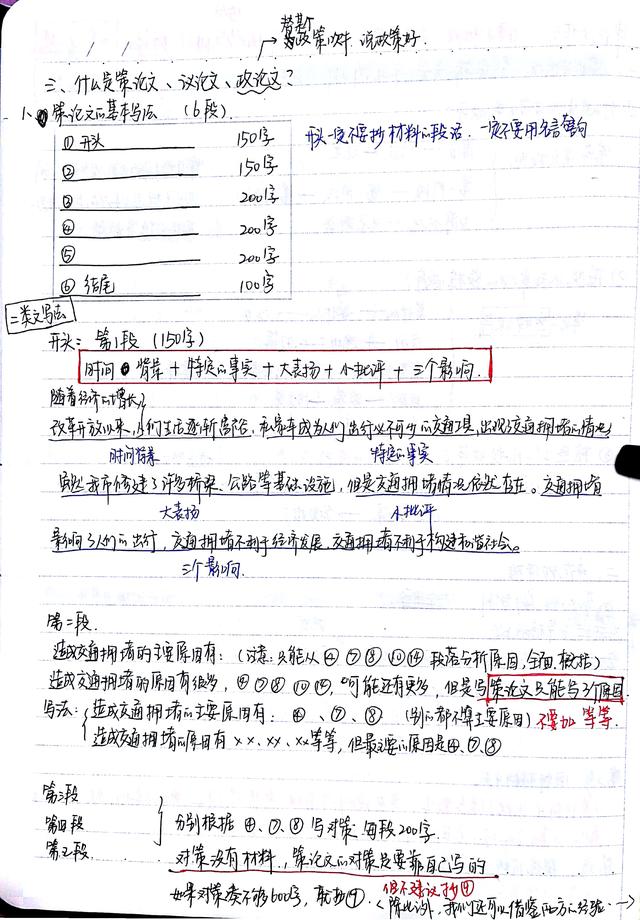 替某个
政策文件 说政策好.
三、什么是策论文、议论文、政论文?
1、策论文的基本写法 (6段).
① 开头 150字
② 150字
③ 200字
④ 200字
⑤ 200字
⑥ 结尾 100字
开头一定不要抄材料的段话. 一定不要用名言警句
二类文写法
开头: 第1段 (150字)
时间背景 + 特定的事实 + 大表扬 + 小批评 + 三个影响.
随着经济的增长,
改革开放以来, 人们生活逐渐富裕, 私家车成为人们出行必不可少的交通工具, 出现了交通拥堵的情况
时间背景 特定的事实
虽然我市修建了许多桥梁、公路等基础设施, 但是交通拥堵情况依然存在。交通拥堵
大表扬 小批评
影响了人们的出行, 交通拥堵不利于经济发展, 交通拥堵不利于构建和谐社会。
三个影响.
第二段.
造成交通拥堵的主要原因有: (注意: 只能从④⑦⑧⑩⑭段落分析原因, 全面.概括)
造成交通拥堵的原因有很多, ④⑦⑧⑩⑭, 可能还有更多, 但是写策论文只能写3个原因
写法: 造成交通拥堵的主要原因有: ④、⑦、⑧ (别的都不算主要原因) 不要加等等.
造成交通拥堵的原因有××、××、××等等, 但最主要的原因是④、⑦、⑧
第三段
第四段
第五段
分别根据④、⑦、⑧写对策. 每段200字.
对策没有材料, 策论文的对策是要靠自己写的
但不建议抄④
如果对策凑不够600字, 就抄④.
(除此以外, 我们还可以借鉴西方的经验. →)